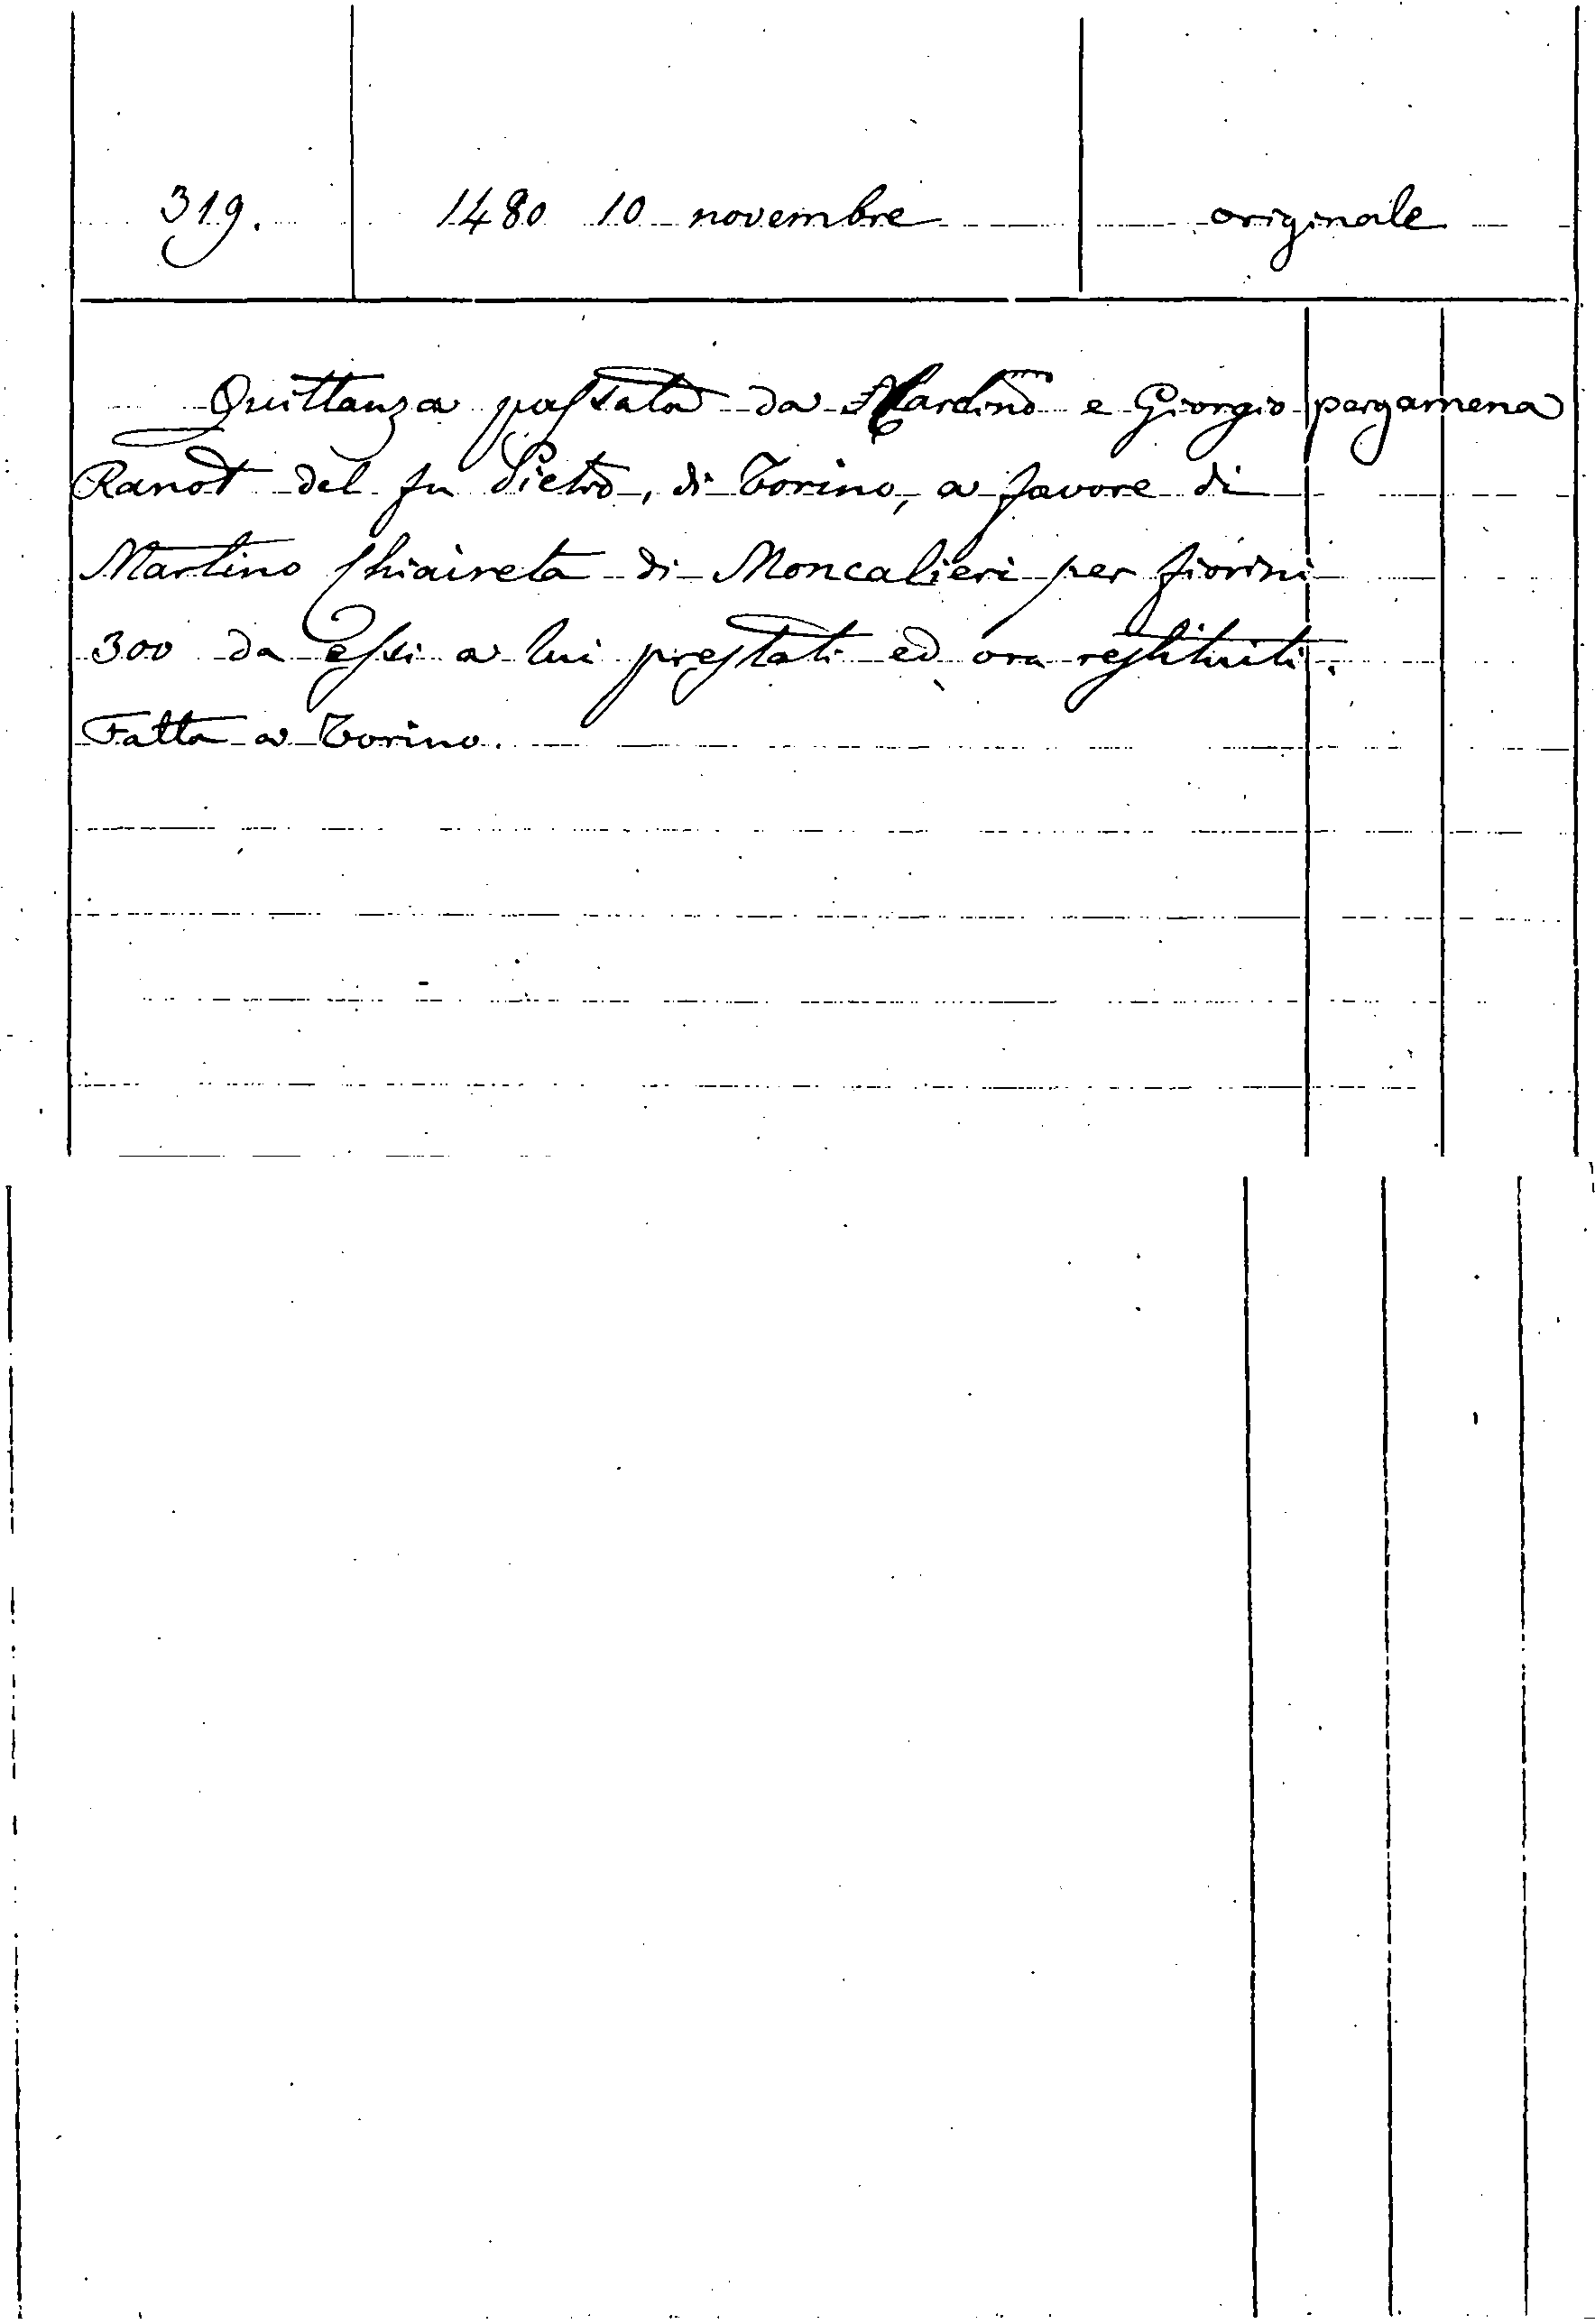 319. 1480 10 novembre originale
Quittanza passata da e Giorgio pergamena
Ranot del fu Pietro, di Torino, a favore di
Martino Chiaireta di Moncalieri per fiorini
300 da essi a lui prestati ed ora restituiti.
Fatta a Torino.